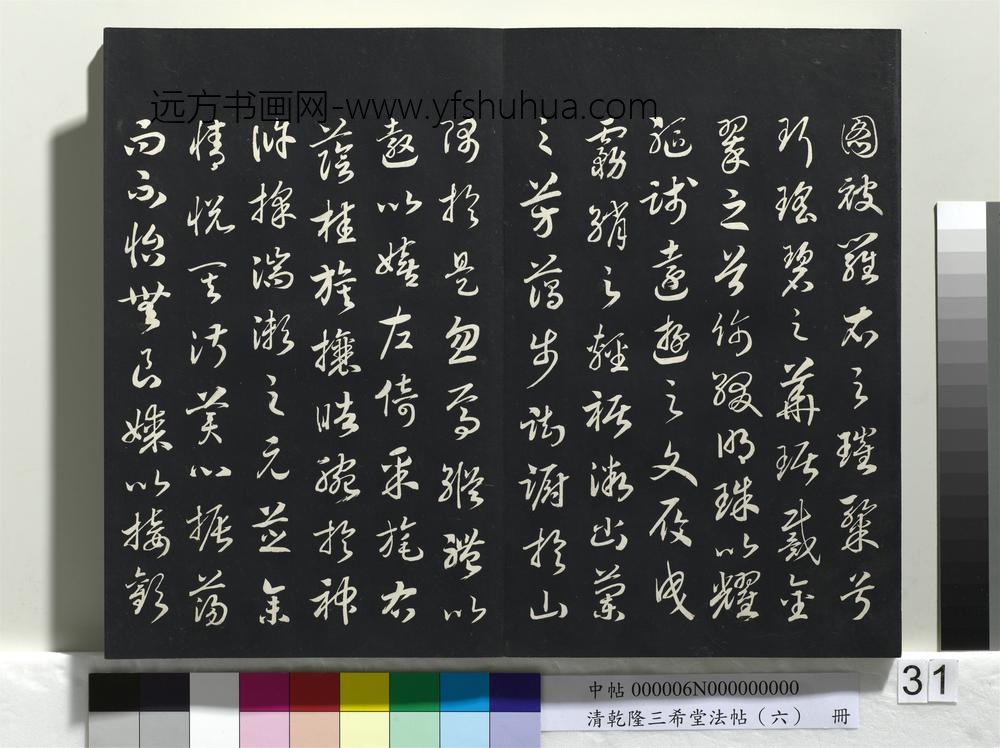 远方书画网-www.yfshuhua.com
圖被羅衣之璀粲兮
珥瑤碧之華琚戴金
翠之首飾綴明珠以耀
軀踐遠遊之文履曳
霧綃之輕裾微幽蘭
之芳藹步踟躕於山
隅於是忽焉縱體以
遨以嬉左倚采旄右
蔭桂旗攘皓腕於神
滸採湍瀨之元芝余
情悅其淑美心振蕩
而不怡無良媒以接歡
中帖 000006N000000000
清乾隆三希堂法帖（六） 冊
31